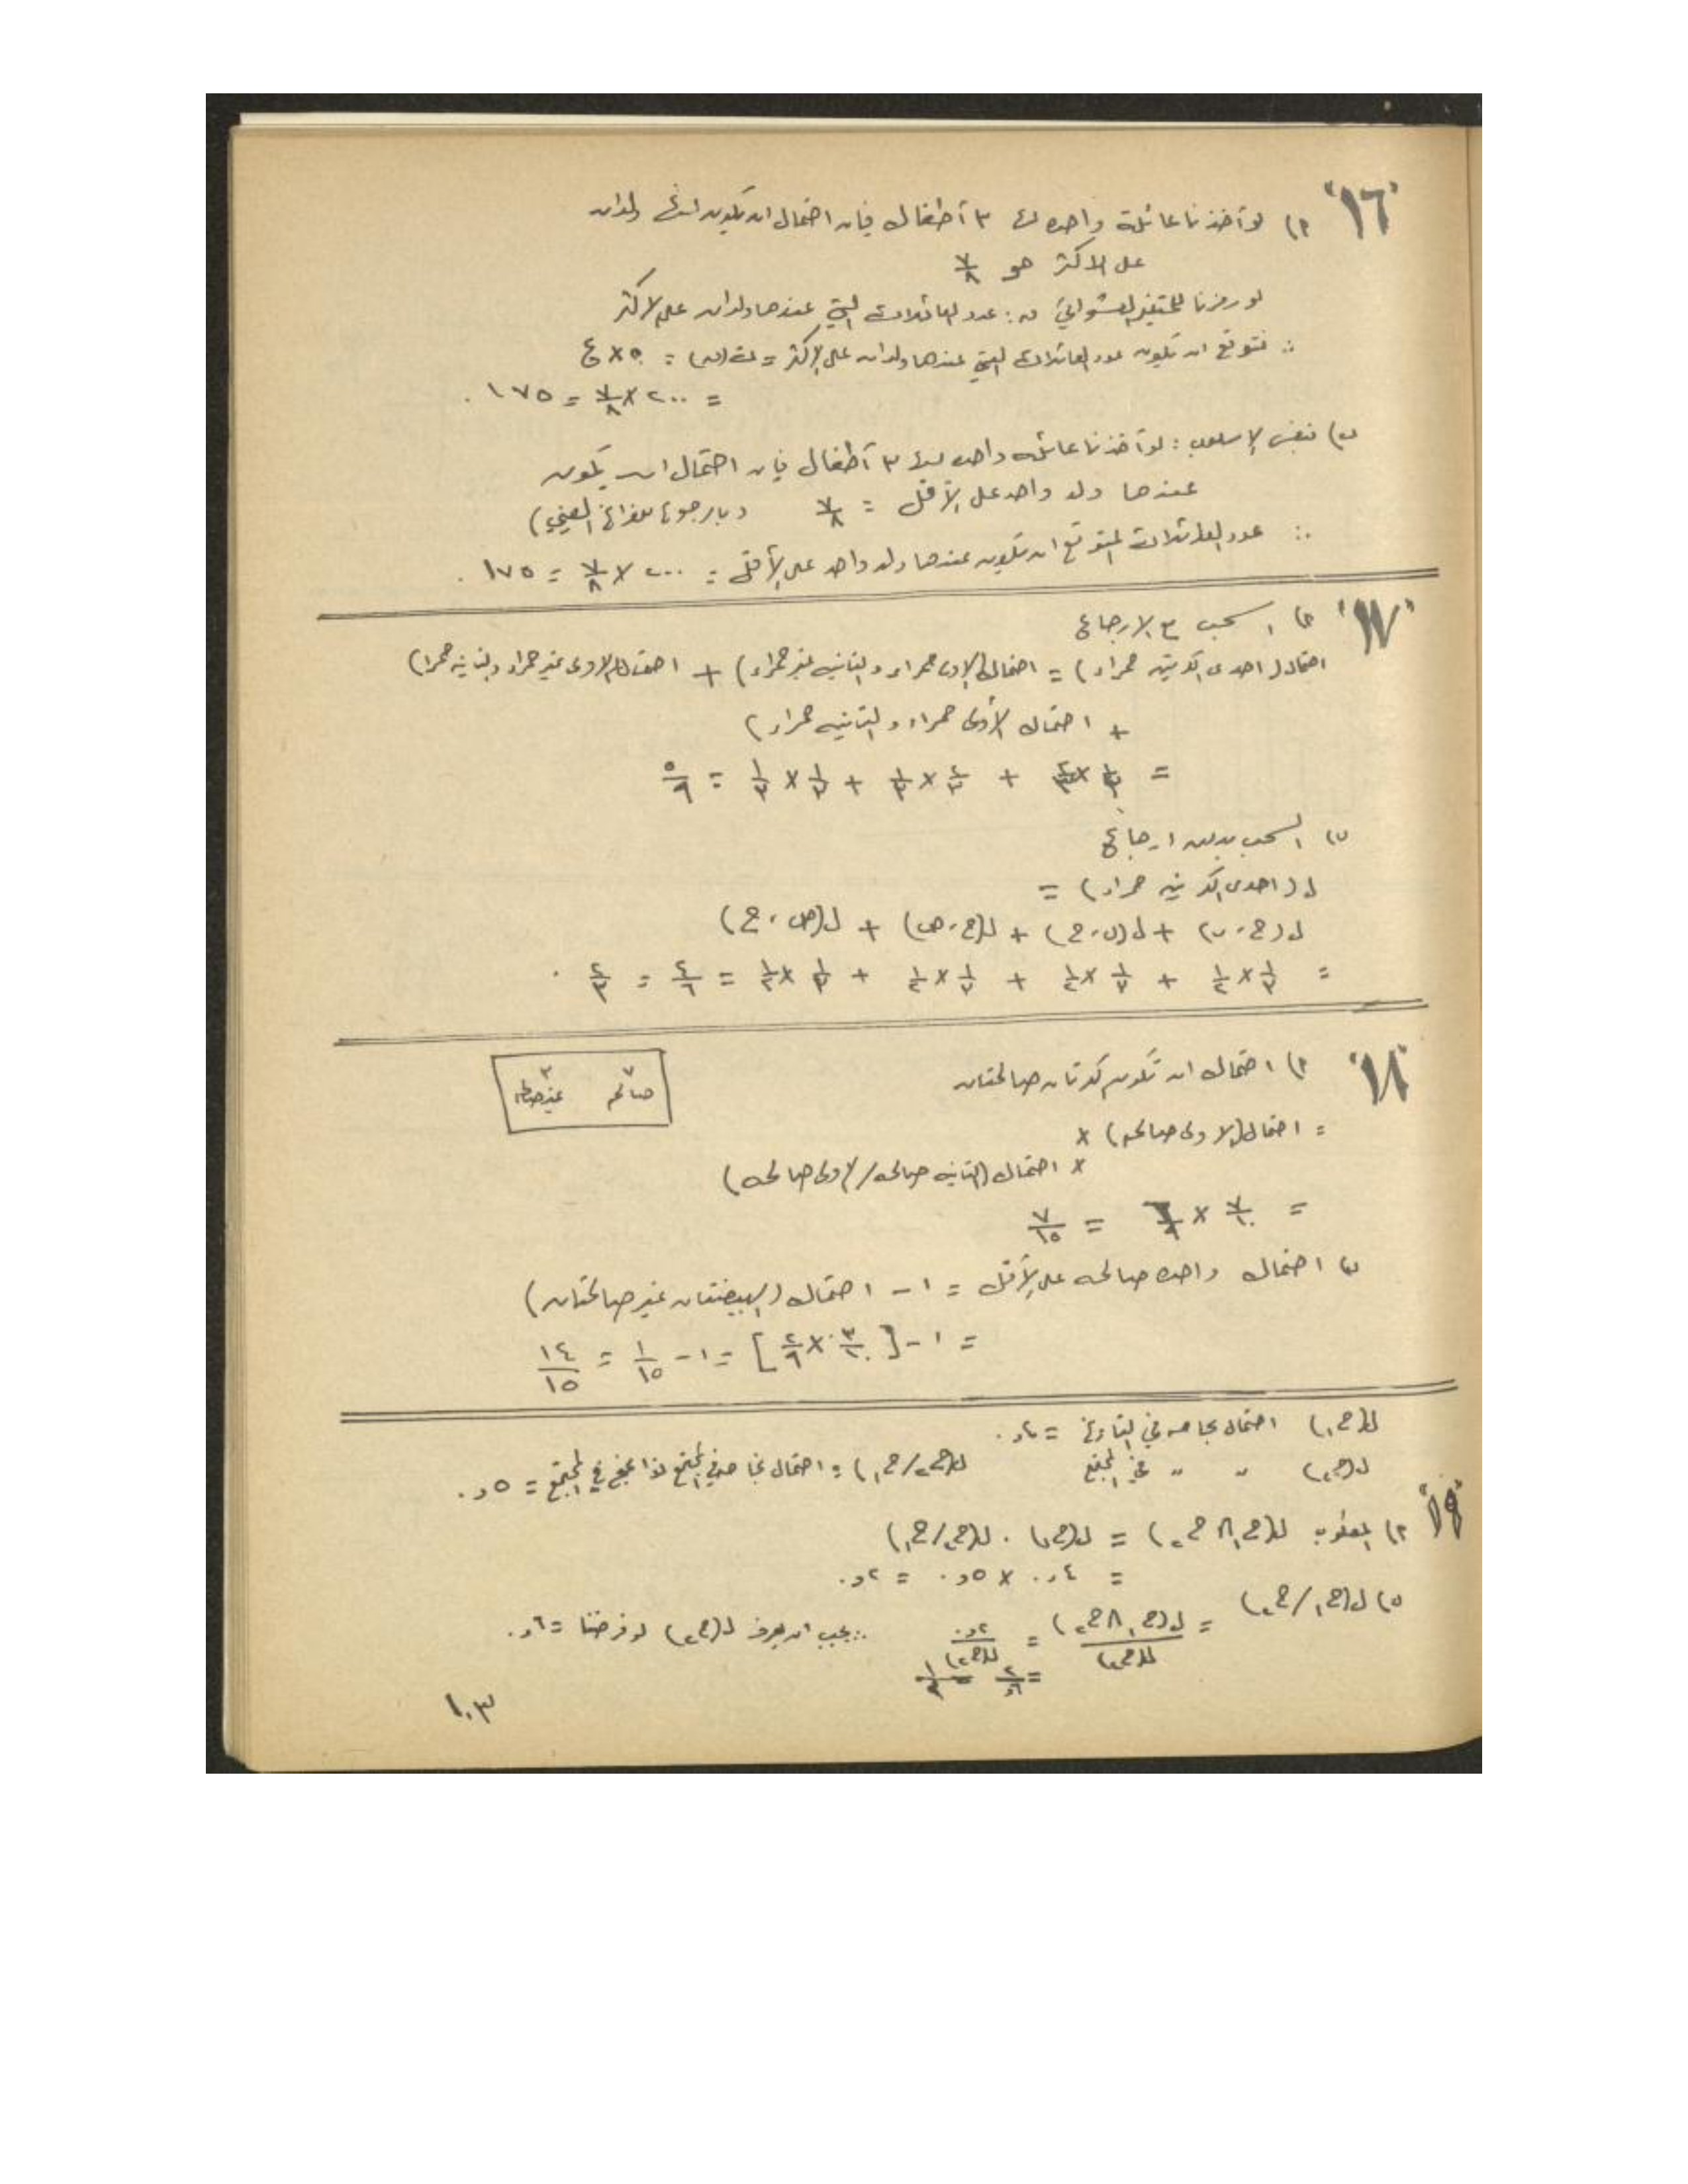 "١٦" ٢) لو أخذنا عائلة واحده لها ٣ أطفال فإن احتمال ان يكون لديها ولدان
على الاكثر هو ٧/٨
لو رمزنا للمتغير العشوائي ن : عدد العائلات التي عندها ولدان على الاكثر
∴ نتوقع ان تكون عدد العائلات التي عندها ولدان على الاكثر = ت(ن) = ن × ع
= ٢٠٠ × ٧/٨ = ١٧٥ .
ب) بنفس الاسلوب : لو أخذنا عائله واحده لها ٣ أطفال فإن احتمال ان يكون
عندها ولد واحد على الأقل = ٧/٨ (بالرجوع للفراغ العيني)
∴ عدد العائلات المتوقع ان تكون عندها ولد واحد على الأقل = ٢٠٠ × ٧/٨ = ١٧٥ .
"١٧" ٢) السحب مع الارجاع
احتمال (احدى الكرتين حمراء) = احتمال (الاولى حمراء والثانيه غير حمراء) + احتمال (الاولى غير حمراء والثانيه حمراء)
+ احتمال (الأولى حمراء والثانيه حمراء)
= ١/٣ × ٢/٣ + ٢/٣ × ١/٣ + ١/٣ × ١/٣ = ٥/٩
ب) السحب بدون ارجاع
ل (احدى الكرتين حمراء) =
ل(ح، ب) + ل(ب، ح) + ل(ح، ص) + ل(ص، ح)
= ١/٣ × ١/٢ + ١/٣ × ١/٢ + ١/٣ × ١/٢ + ١/٣ × ١/٢ = ٤/٦ = ٢/٣ .
"١٨" ٢) احتمال ان تكون كرتان صالحتان
٧ ٣
صالح غير صالح
= احتمال (الاولى صالحه) ×
× احتمال (الثانيه صالحه / الاولى صالحه)
= ٧/١٠ × ٦/٩ = ٧/١٥
ب) احتمال واحده صالحه على الأقل = ١ - احتمال (البيضتان غير صالحتان)
= ١ - [٣/١٠ × ٢/٩] = ١ - ١/١٥ = ١٤/١٥
ل(ح١) احتمال نجاحه في التاريخ = ٤و٠
ل(ح٢) " " في المجتمع ل(ح٢/ح١) = احتمال نجاحه في المجتمع = ٥و٠
"١٩" ٢) المطلوب ل(ح١ ∩ ح٢) = ل(ح١) . ل(ح٢/ح١)
= ٤و٠ × ٥و٠ = ٢و٠
ب) ل(ح١/ح٢) = ل(ح١ ∩ ح٢)/ل(ح٢) = ٢و٠/ل(ح٢) ∴ يجب ان نعرف ل(ح٢) لو فرضنا = ٦و٠
= ٢/٦ = ١/٣
١٠٣